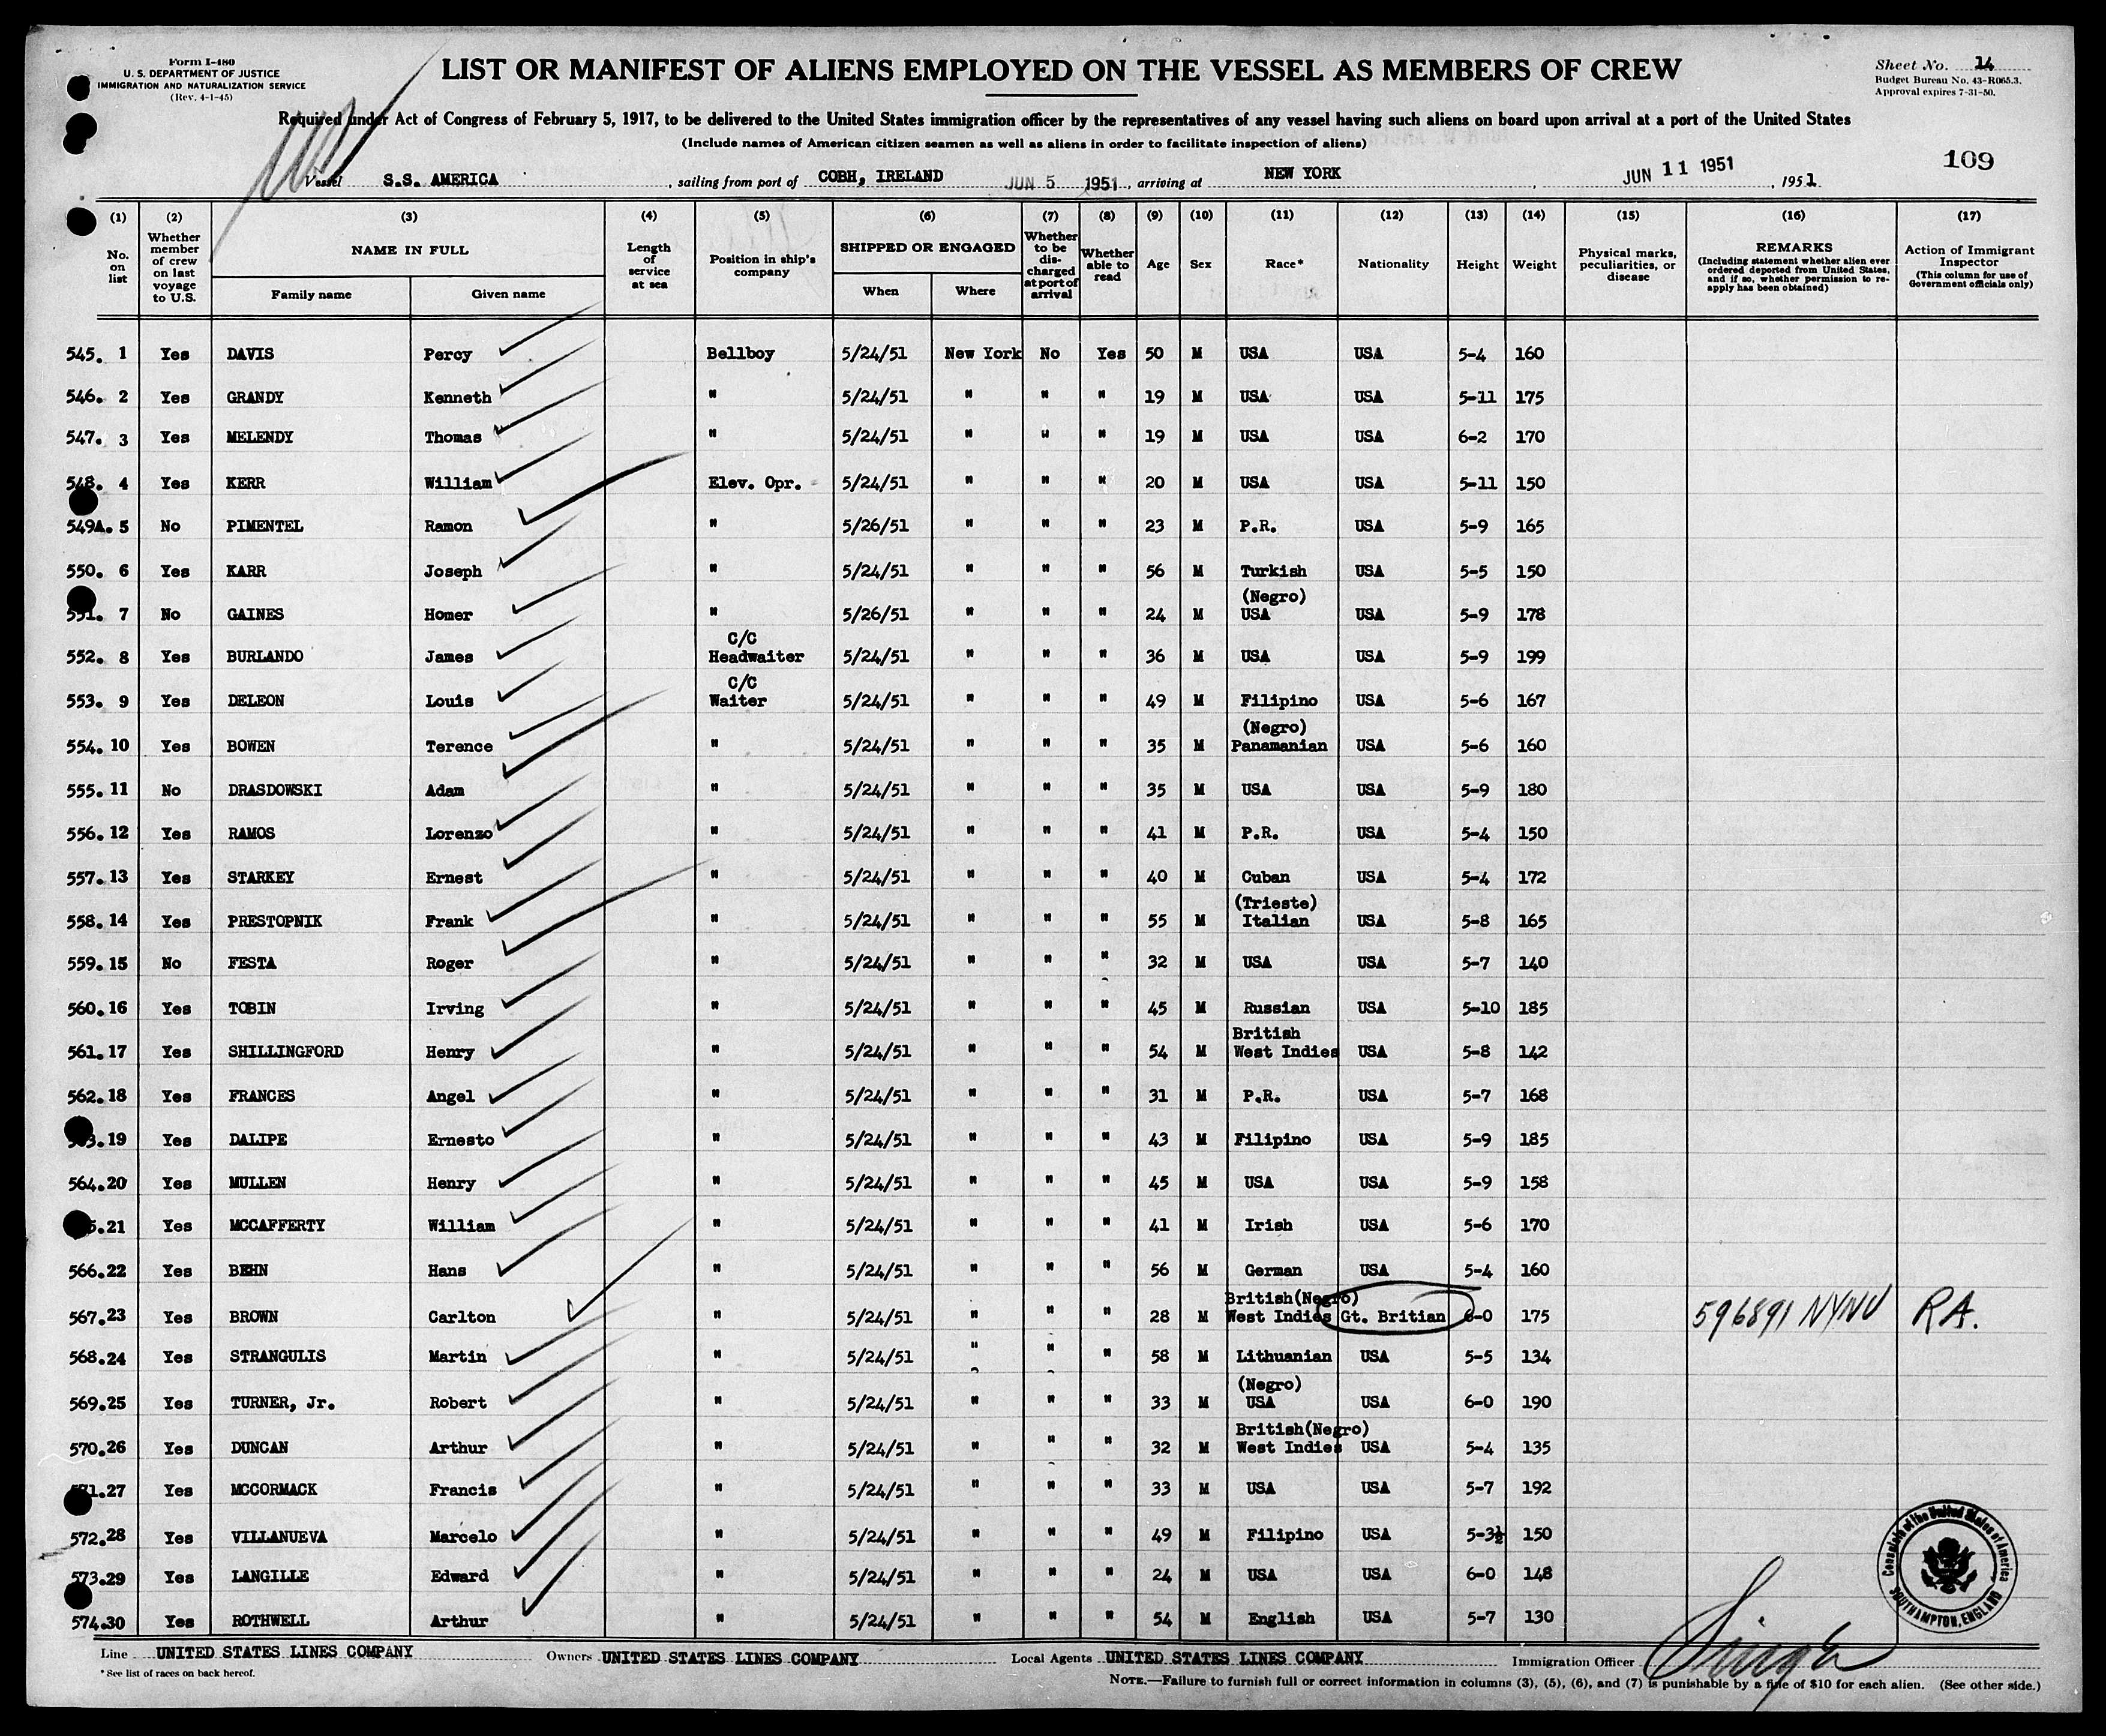 Form I-480
U. S. DEPARTMENT OF JUSTICE
IMMIGRATION AND NATURALIZATION SERVICE
(Rev. 4-1-45)
LIST OR MANIFEST OF ALIENS EMPLOYED ON THE VESSEL AS MEMBERS OF CREW
Sheet No. 14
Budget Bureau No. 43-R065.3.
Approval expires 7-31-50.
Required under Act of Congress of February 5, 1917, to be delivered to the United States immigration officer by the representatives of any vessel having such aliens on board upon arrival at a port of the United States
(Include names of American citizen seamen as well as aliens in order to facilitate inspection of aliens)
109
Vessel S.S. AMERICA, sailing from port of COBH, IRELAND JUN 5 1951, arriving at NEW YORK, JUN 11 1951, 1951
(1) (2) (3) (4) (5) (6) (7) (8) (9) (10) (11) (12) (13) (14) (15) (16) (17)
No. on list
Whether member of crew on last voyage to U.S.
NAME IN FULL
Family name
Given name
Length of service at sea
Position in ship's company
SHIPPED OR ENGAGED
When
Where
Whether to be discharged at port of arrival
Whether able to read
Age
Sex
Race*
Nationality
Height
Weight
Physical marks, peculiarities, or disease
REMARKS
(Including statement whether alien ever ordered deported from United States, and if so, whether permission to reapply has been obtained)
Action of Immigrant Inspector
(This column for use of Government officials only)
545. 1 Yes DAVIS Percy Bellboy 5/24/51 New York No Yes 50 M USA USA 5-4 160
546. 2 Yes GRANDY Kenneth " 5/24/51 " " " 19 M USA USA 5-11 175
547. 3 Yes MELENDY Thomas " 5/24/51 " " " 19 M USA USA 6-2 170
548. 4 Yes KERR William Elev. Opr. 5/24/51 " " " 20 M USA USA 5-11 150
549A. 5 No PIMENTEL Ramon " 5/26/51 " " " 23 M P.R. USA 5-9 165
550. 6 Yes KARR Joseph " 5/24/51 " " " 56 M Turkish USA 5-5 150
(Negro)
551. 7 No GAINES Homer " 5/26/51 " " " 24 M USA USA 5-9 178
C/C
552. 8 Yes BURLANDO James Headwaiter 5/24/51 " " " 36 M USA USA 5-9 199
C/C
553. 9 Yes DELEON Louis Waiter 5/24/51 " " " 49 M Filipino USA 5-6 167
(Negro)
554. 10 Yes BOWEN Terence " 5/24/51 " " " 35 M Panamanian USA 5-6 160
555. 11 No DRASDOWSKI Adam " 5/24/51 " " " 35 M USA USA 5-9 180
556. 12 Yes RAMOS Lorenzo " 5/24/51 " " " 41 M P.R. USA 5-4 150
557. 13 Yes STARKEY Ernest " 5/24/51 " " " 40 M Cuban USA 5-4 172
(Trieste)
558. 14 Yes PRESTOPNIK Frank " 5/24/51 " " " 55 M Italian USA 5-8 165
559. 15 No FESTA Roger " 5/24/51 " " " 32 M USA USA 5-7 140
560. 16 Yes TOBIN Irving " 5/24/51 " " " 45 M Russian USA 5-10 185
British
561. 17 Yes SHILLINGFORD Henry " 5/24/51 " " " 54 M West Indies USA 5-8 142
562. 18 Yes FRANCES Angel " 5/24/51 " " " 31 M P.R. USA 5-7 168
3. 19 Yes DALIPE Ernesto " 5/24/51 " " " 43 M Filipino USA 5-9 185
564. 20 Yes MULLEN Henry " 5/24/51 " " " 45 M USA USA 5-9 158
5. 21 Yes MCCAFFERTY William " 5/24/51 " " " 41 M Irish USA 5-6 170
566. 22 Yes BEHN Hans " 5/24/51 " " " 56 M German USA 5-4 160
British(Negro)
567. 23 Yes BROWN Carlton " 5/24/51 " " " 28 M West Indies Gt. Britian 6-0 175 596891 NYNU RA.
568. 24 Yes STRANGULIS Martin " 5/24/51 " " " 58 M Lithuanian USA 5-5 134
(Negro)
569. 25 Yes TURNER, Jr. Robert " 5/24/51 " " " 33 M USA USA 6-0 190
British(Negro)
570. 26 Yes DUNCAN Arthur " 5/24/51 " " " 32 M West Indies USA 5-4 135
571. 27 Yes MCCORMACK Francis " 5/24/51 " " " 33 M USA USA 5-7 192
572. 28 Yes VILLANUEVA Marcelo " 5/24/51 " " " 49 M Filipino USA 5-3½ 150
573. 29 Yes LANGILLE Edward " 5/24/51 " " " 24 M USA USA 6-0 148
574. 30 Yes ROTHWELL Arthur " 5/24/51 " " " 54 M English USA 5-7 130
Consulate of the United States of America
SOUTHAMPTON, ENGLAND
Line UNITED STATES LINES COMPANY Owners UNITED STATES LINES COMPANY Local Agents UNITED STATES LINES COMPANY Immigration Officer
*See list of races on back hereof.
NOTE.—Failure to furnish full or correct information in columns (3), (5), (6), and (7) is punishable by a fine of $10 for each alien. (See other side.)